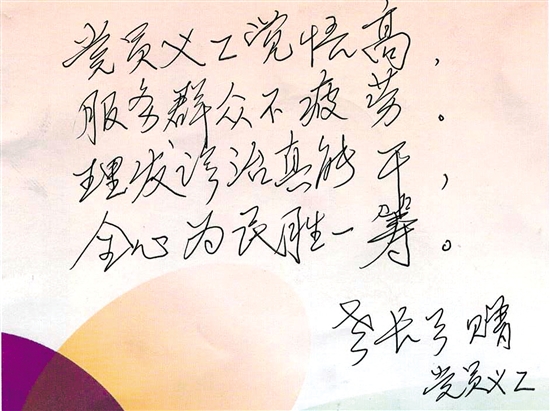 党员义工觉悟高，
服务群众不疲劳。
理发诊治真能干，
全心为民胜一筹。
李长弓 赠
党员义工